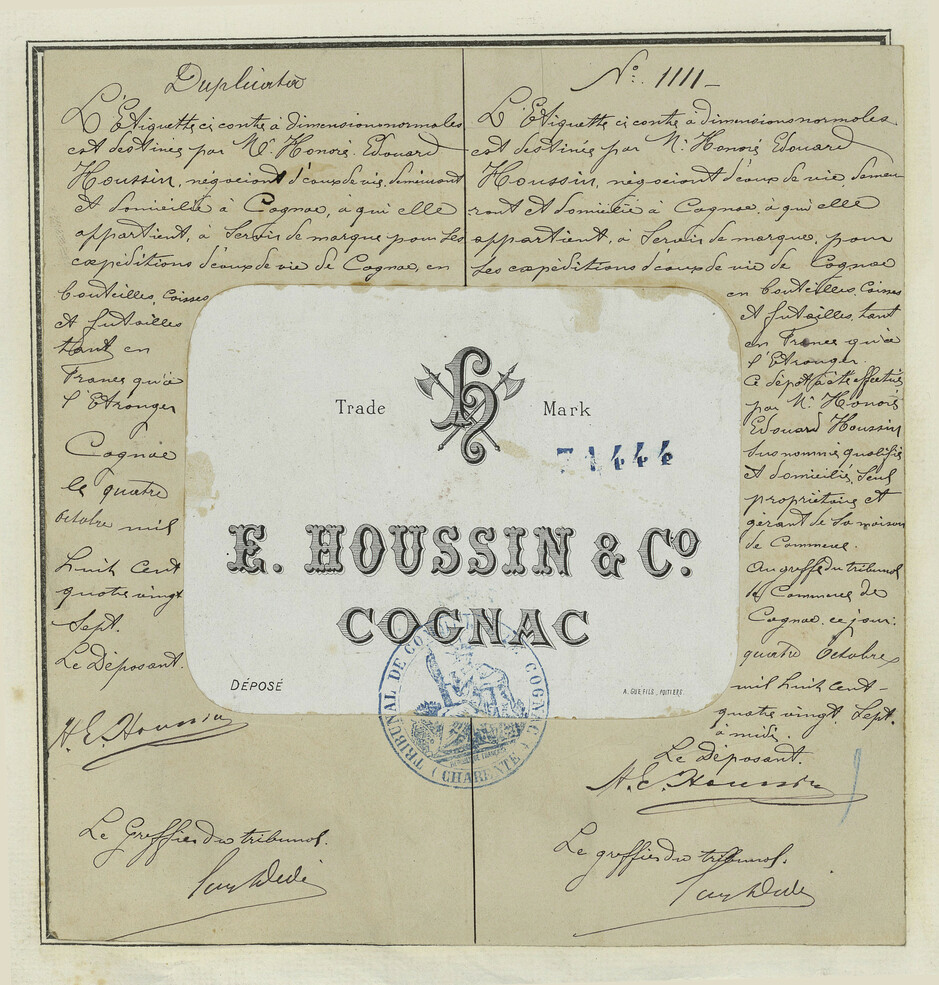 Duplicata
L'Etiquette ci contre à dimensions normales
est destinée par Mr. Honoré Edouard
Houssin, négociant d'eaux de vie, demeurant
et domicilié à Cognac, à qui elle
appartient, à servir de marque pour ses
expéditions d'eaux de vie de Cognac, en
bouteilles, caisses
et futailles
tant en
France qu'à
l'Etranger
Cognac
le quatre
octobre mil
huit cent
quatre vingt
sept.
Le Déposant.
H. E. Houssin
Le Greffier du tribunal.
No. 1111
L'Etiquette ci contre à dimensions normales
est destinée par Mr. Honoré Edouard
Houssin, négociant d'eaux de vie, demeu-
rant et domicilié à Cognac, à qui elle
appartient, à servir de marque, pour
ses expéditions d'eaux de vie de Cognac
en bouteilles, caisses
et futailles, tant
en France qu'à
l'Etranger.
Ce dépôt a été effectué
par Mr. Honoré
Edouard Houssin
susnommé qualifié
et domicilié, seul
propriétaire et
gérant de sa maison
de Commerce.
Au greffe du tribunal
de Commerce de
Cognac, ce jour:
quatre Octobre
mil huit cent-
quatre vingt sept.
à midi.
Le Déposant.
H. E. Houssin
Le greffier du tribunal.
Trade Mark
H
71444
E. HOUSSIN & Co.
COGNAC
DÉPOSÉ
A. GUÉ FILS, POITIERS.
TRIBUNAL DE COMMERCE DE COGNAC
(CHARENTE)